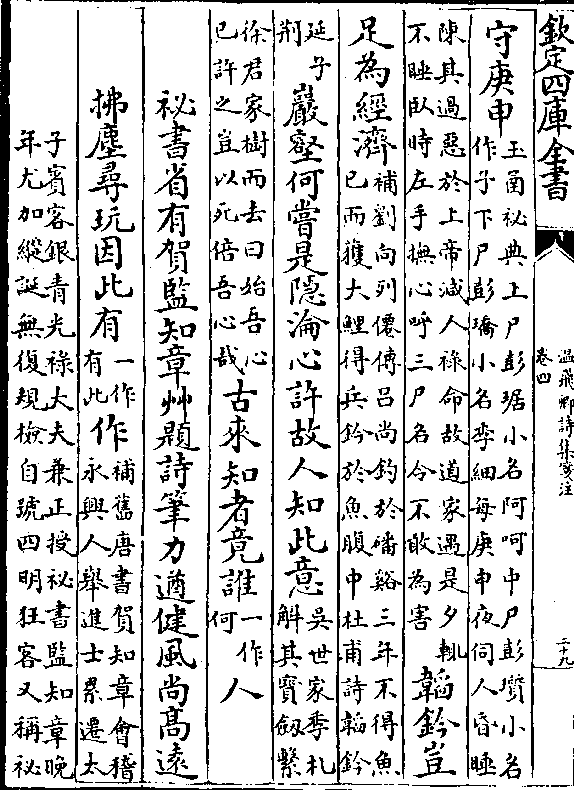 欽定四庫全書
温飛卿詩集箋注
卷四
二十九
守庚申
玉函祕典上尸彭琚小名阿呵中尸彭瓚小名
作子下尸彭矯小名季細每庚申夜伺人昏睡
陳其過惡於上帝減人祿命故道家遇是夕輒
不睡臥時左手撫心呼三尸名令不敢為害
韜鈐豈
足為經濟
補劉向列僊傳吕尚釣於磻谿三年不得魚
已而獲大鯉得兵鈐於魚腹中杜甫詩韜鈐
延子
荆
巖壑何嘗是隠淪心許故人知此意
吳世家季札
解其寳劔繫
徐君家樹而去曰始吾心
已許之豈以死倍吾心哉
古來知者竟誰
一作
何
人
祕書省有賀監知章艸題詩筆力遒健風尚髙遠
拂塵尋玩因此有
一作
有此
作
補舊唐書賀知章會稽
永興人舉進士累遷太
子賓客銀青光祿大夫兼正授祕書監知章晚
年尤加縱誕無復規檢自號四明狂客又稱祕